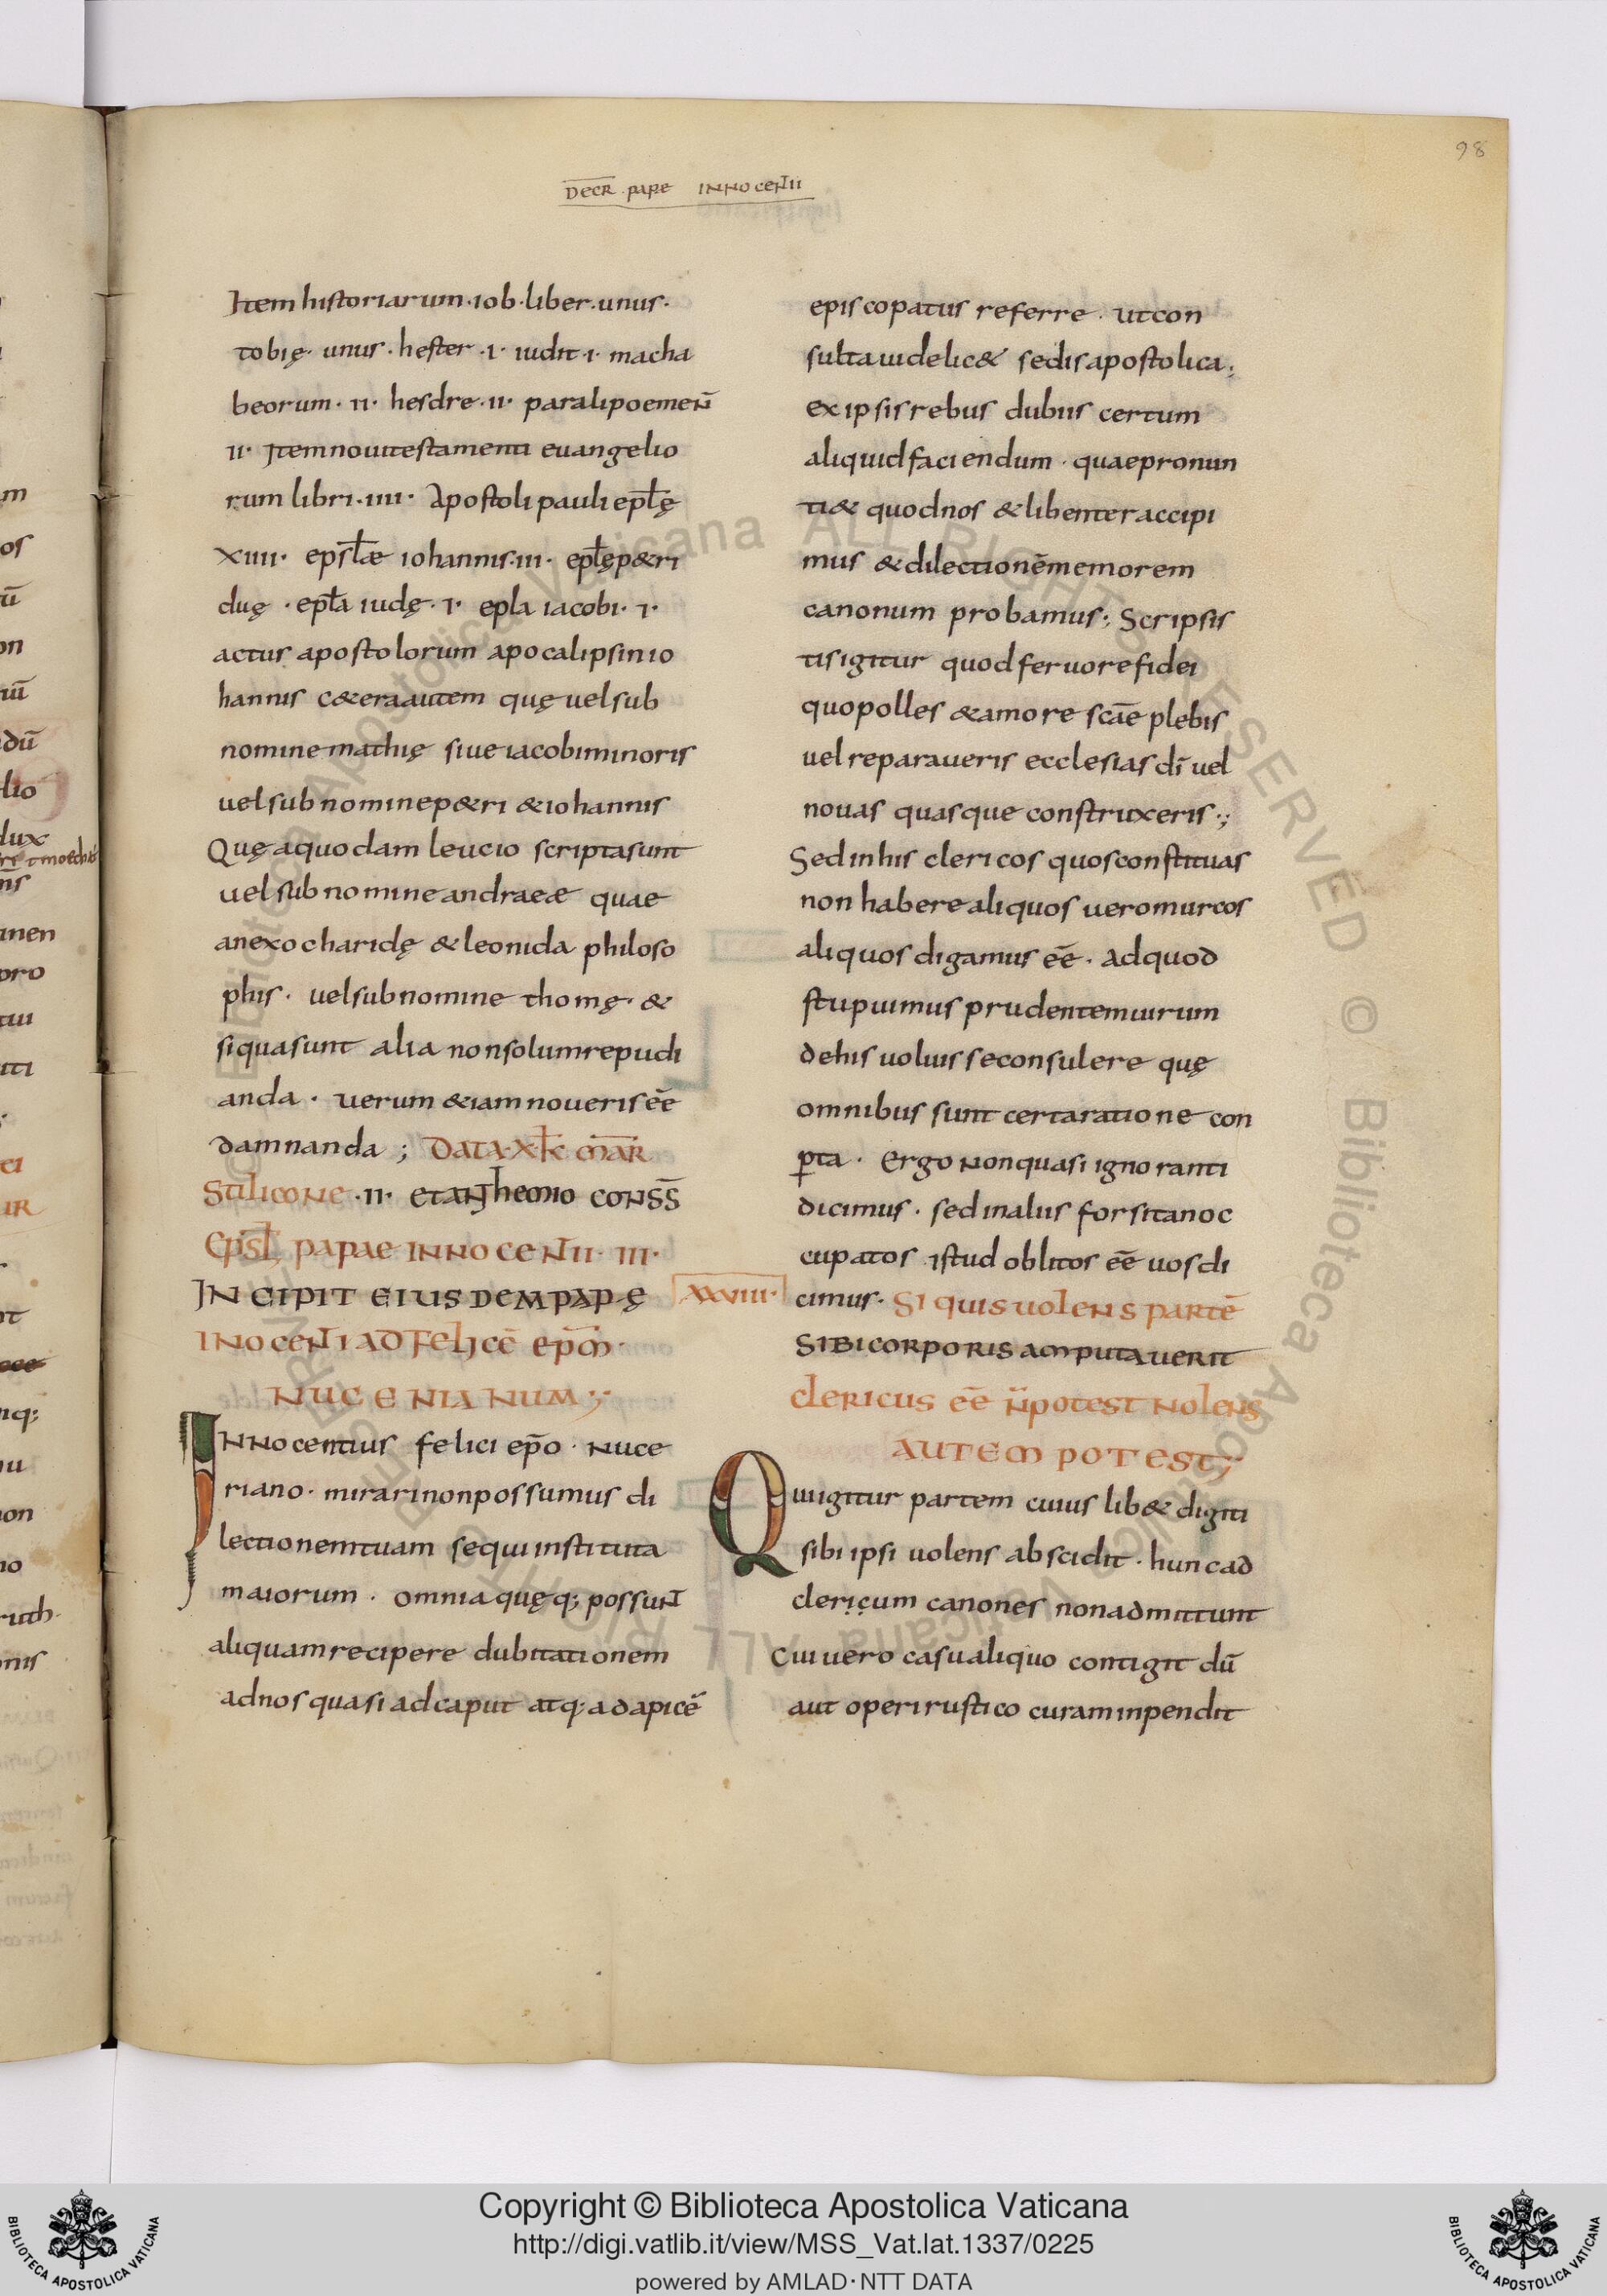 98
DECR PAPE INNOCEN̄II
Item historiarum · iob · liber · unus ·
tobię · unus · hester · I · iudit · I · macha
beorum · II · hesdre · II · paralipoemen̄
II · Item noui testamenti euangelio
rum libri · IIII · Apostoli pauli epłę
XIIII · epsłæ iohannis · III · epłę p&ri
duę · epła iudę · I · epla iacobi · I ·
actus apostolorum apocalipsin io
hannis c&era autem quę uel sub
nomine mathię siue iacobi minoris
uel sub nomine p&ri & iohannis
Quę a quodam leucio scripta sunt
uel sub nomine andraeæ quae
anexocharidę & leonida philoso
phis · uel sub nomine thomę · &
si qua sunt alia non solum repudi
anda · uerum &iam noueris eē
damnanda ; DATA · X · K̄ MAR̄
STILICONE · II · ET ANTHEMIO CONS̄S̄
EPSŁ PAPAE INNOCEN̄II · III ·
INCIPIT EIUSDEM PAPĘ
INOCEN̄I AD FELICĒ EPM̄ ·
NUCENIANUM ;
INNocentius felici ep̄o · NUCE
riano · mirari non possumus di
lectionem tuam sequi instituta
maiorum · omnia quęq; possun̄
aliquam recipere dubitationem
ad nos quasi ad caput atq; ad apicē
episcopatus referre · ut con
sulta uidelic& sedis apostolica ;
ex ipsis rebus dubiis certum
aliquid faciendum · quae pronun
ti& quod nos & libenter accipi
mus & dilectionē memorem
canonum probamus ; Scripsis
tis igitur quod feruore fidei
quo polles & amore scāe plebis
uel reparaueris ecclesias dī uel
nouas quasque construxeris ;
Sed in his clericos quos constituas
non habere aliquos uero murcos
aliquos digamus eē · Ad quod
stupuimus prudentem uirum
de his uoluisse consulere quę
omnibus sunt certa ratione con
p̄ta · Ergo non quasi ignoranti
dicimus · sed in aliis forsitan oc
cupatos istud oblitos eē uos di
XXVIIII · cimus · SI QUIS UOLENS PARTĒ
SIBI CORPORIS AMPUTAVERIT
CLERICUS EĒ N̄ POTEST NOLENS
AUTEM POTEST ;
Qui igitur partem cuius lib& digiti
sibi ipsi uolens abscidit · hunc ad
clericum canones non admittunt
Cui uero casu aliquo contigit dū
aut operi rustico curam inpendit
Copyright © Biblioteca Apostolica Vaticana
http://digi.vatlib.it/view/MSS_Vat.lat.1337/0225
powered by AMLAD·NTT DATA
BIBLIOTECA APOSTOLICA VATICANA
BIBLIOTECA APOSTOLICA VATICANA